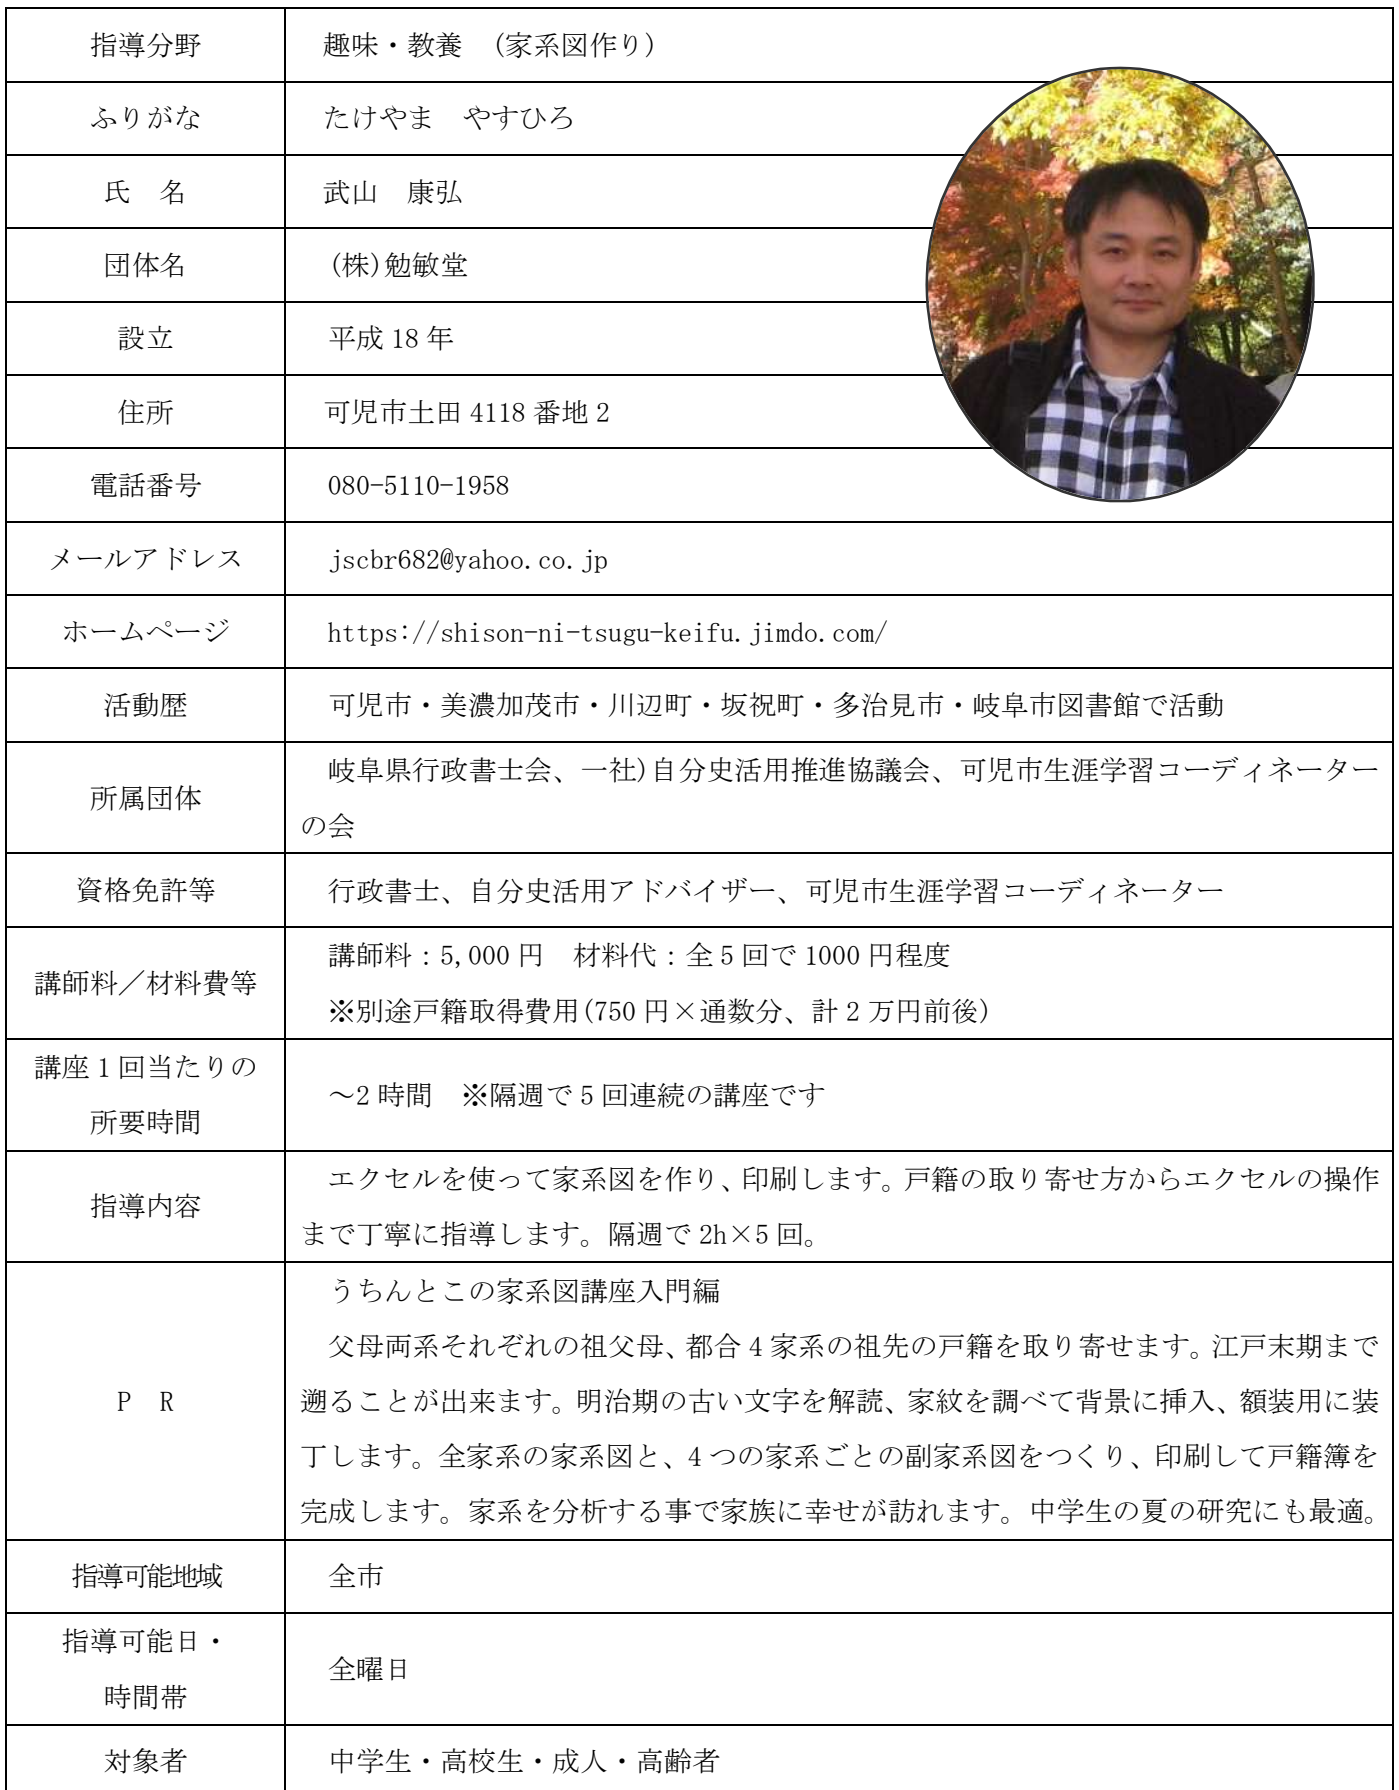 指導分野 趣味・教養 （家系図作り）
ふりがな たけやま やすひろ
氏 名 武山 康弘
団体名 (株)勉敏堂
設立 平成 18 年
住所 可児市土田 4118 番地 2
電話番号 080-5110-1958
メールアドレス jscbr682@yahoo.co.jp
ホームページ https://shison-ni-tsugu-keifu.jimdo.com/
活動歴 可児市・美濃加茂市・川辺町・坂祝町・多治見市・岐阜市図書館で活動
所属団体
岐阜県行政書士会、一社)自分史活用推進協議会、可児市生涯学習コーディネーター
の会
資格免許等 行政書士、自分史活用アドバイザー、可児市生涯学習コーディネーター
講師料／材料費等
講師料：5,000 円 材料代：全 5 回で 1000 円程度
※別途戸籍取得費用(750 円×通数分、計 2 万円前後)
講座 1 回当たりの
所要時間
～2 時間 ※隔週で 5 回連続の講座です
指導内容
エクセルを使って家系図を作り、印刷します。戸籍の取り寄せ方からエクセルの操作
まで丁寧に指導します。隔週で 2h×5 回。
P R
うちんとこの家系図講座入門編
父母両系それぞれの祖父母、都合 4 家系の祖先の戸籍を取り寄せます。江戸末期まで
遡ることが出来ます。明治期の古い文字を解読、家紋を調べて背景に挿入、額装用に装
丁します。全家系の家系図と、4 つの家系ごとの副家系図をつくり、印刷して戸籍簿を
完成します。家系を分析する事で家族に幸せが訪れます。中学生の夏の研究にも最適。
指導可能地域 全市
指導可能日・
時間帯
全曜日
対象者 中学生・高校生・成人・高齢者